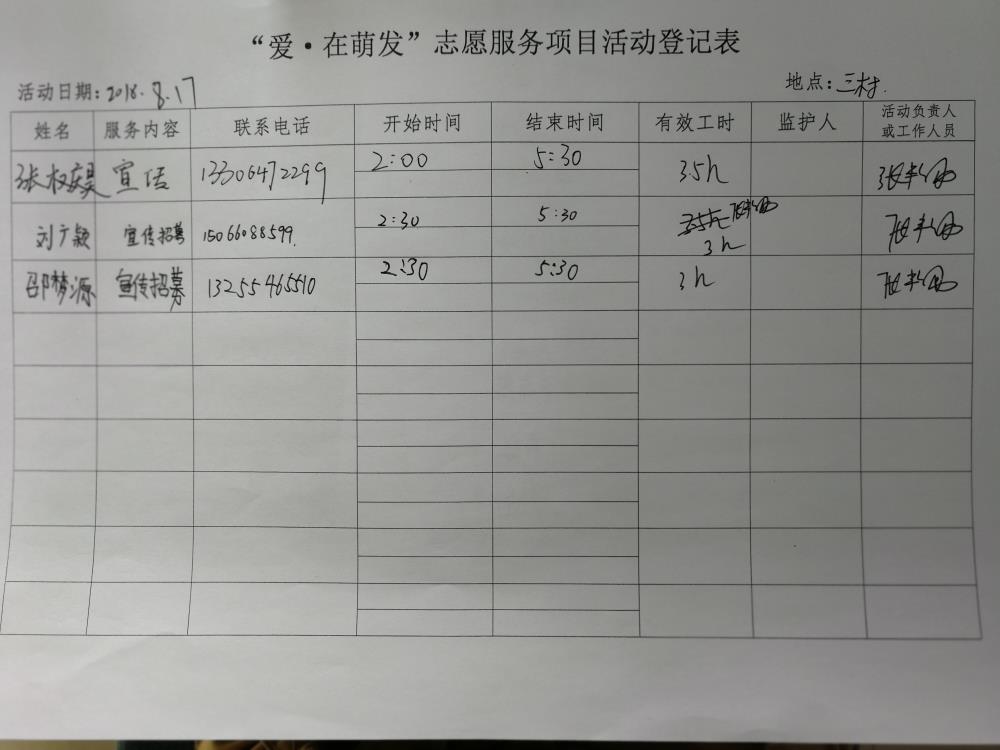 “爱·在萌发”志愿服务项目活动登记表
活动日期：2018.8.17 地点：三村.
姓名 服务内容 联系电话 开始时间 结束时间 有效工时 监护人 活动负责人或工作人员
张权 宣传 13306472299 2:00 5:30 3.5h
刘广颖 宣传招募 15066088599. 2:30 5:30 3h
邵梦源 宣传招募 13255465510 2:30 5:30 3h